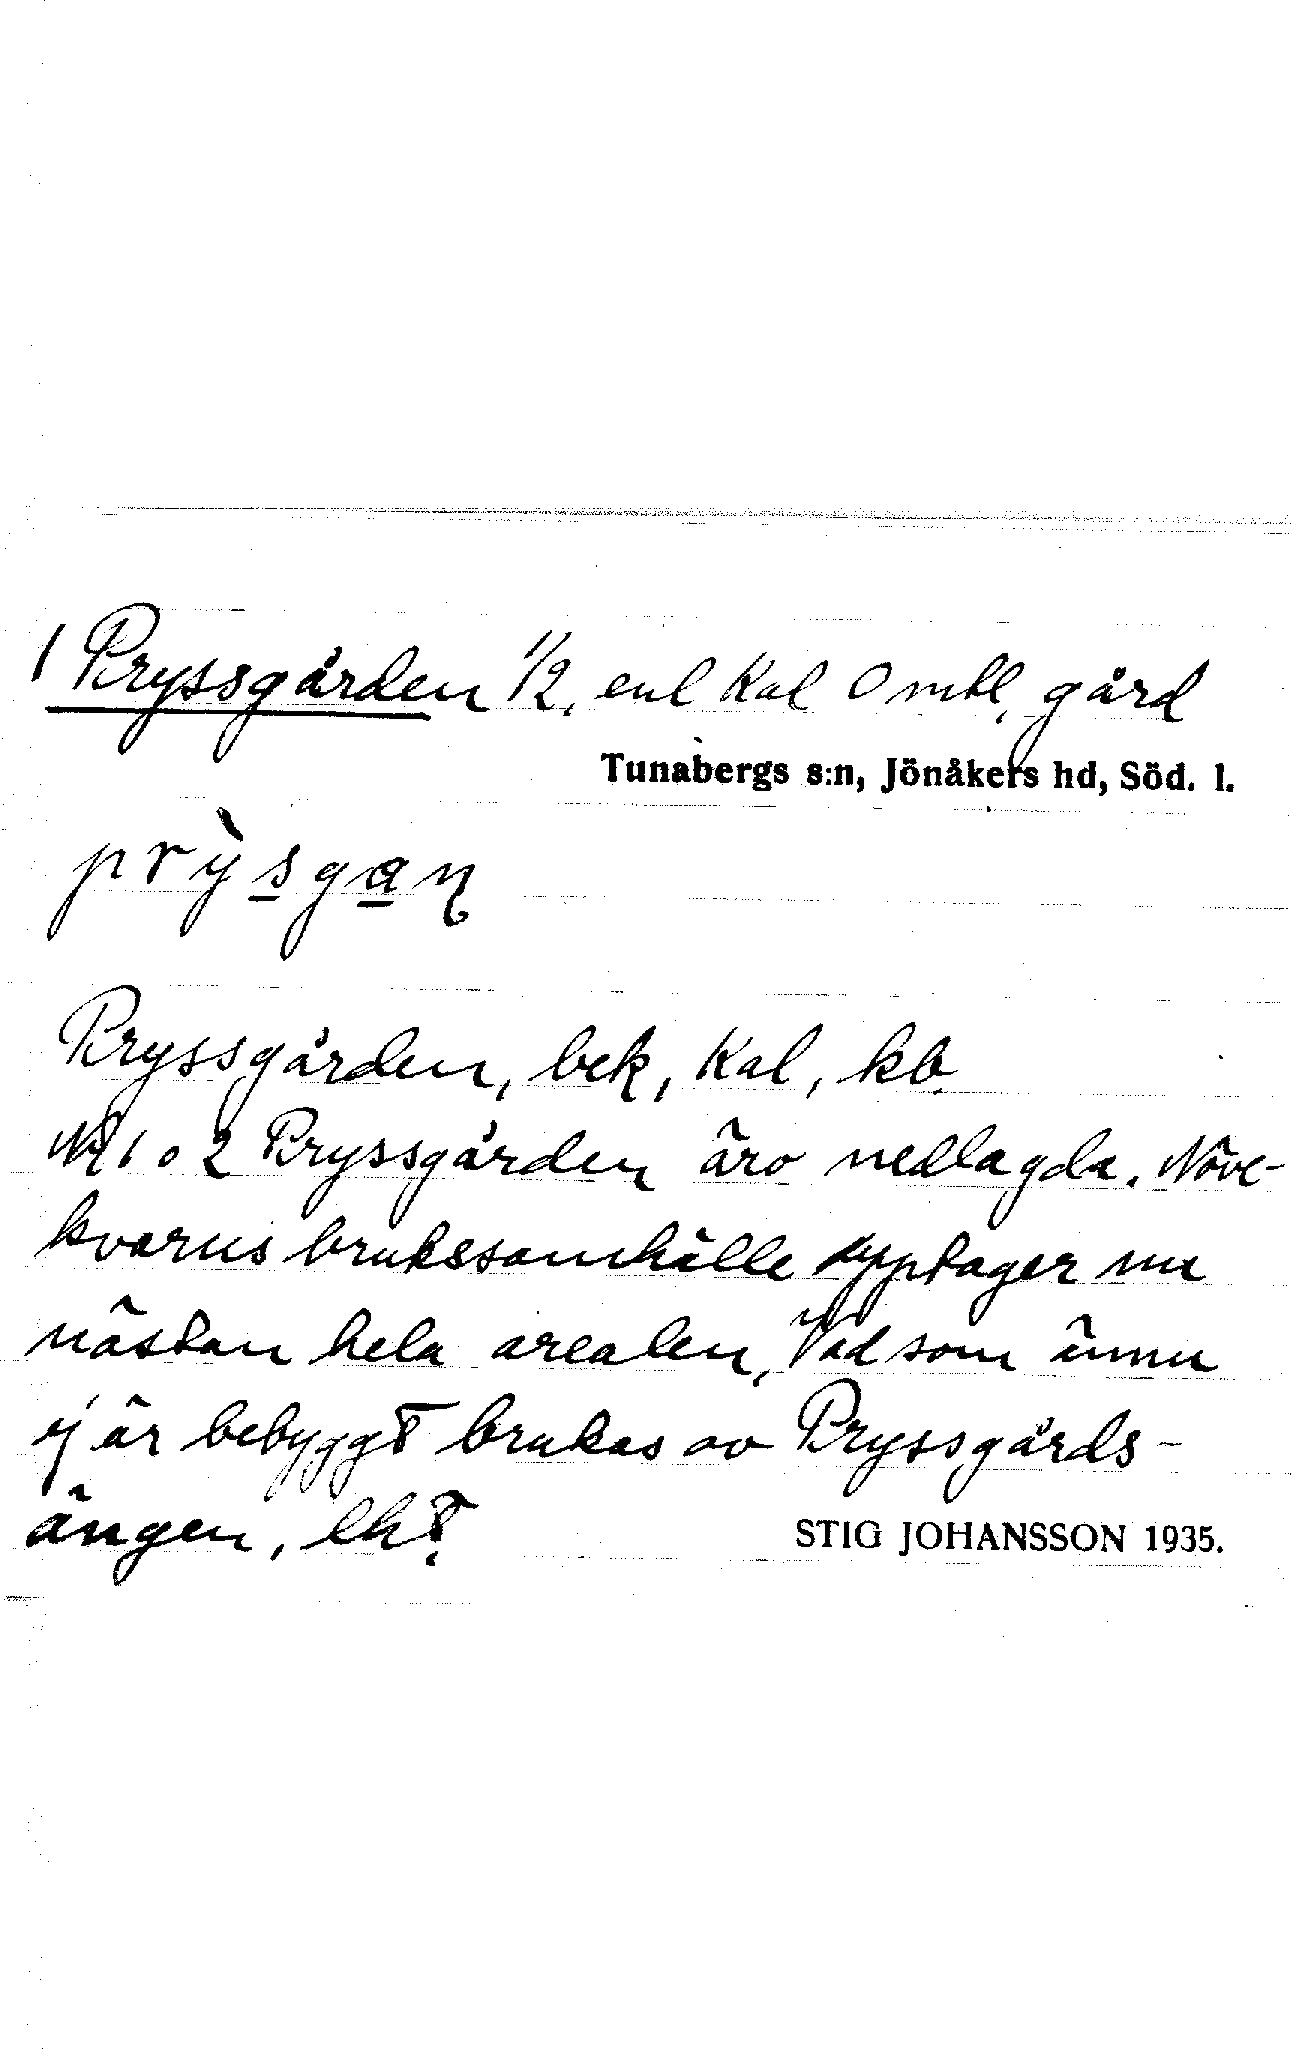 1 Pryssgården 1/2, enl Kal 0 mtl, gård
Tunabergs s:n, Jönåkers hd, Söd. l.
prỳsgaṉ
Pryssgården, bek, Kal, kb
Nr 1 o 2 Pryssgården äro nedlagda. Näve-
kvarns brukssamhälle upptager nu
nästan hela arealen, Vad som ännu
ej är bebyggt brukas av Pryssgårds-
ängen, lht.
STIG JOHANSSON 1935.